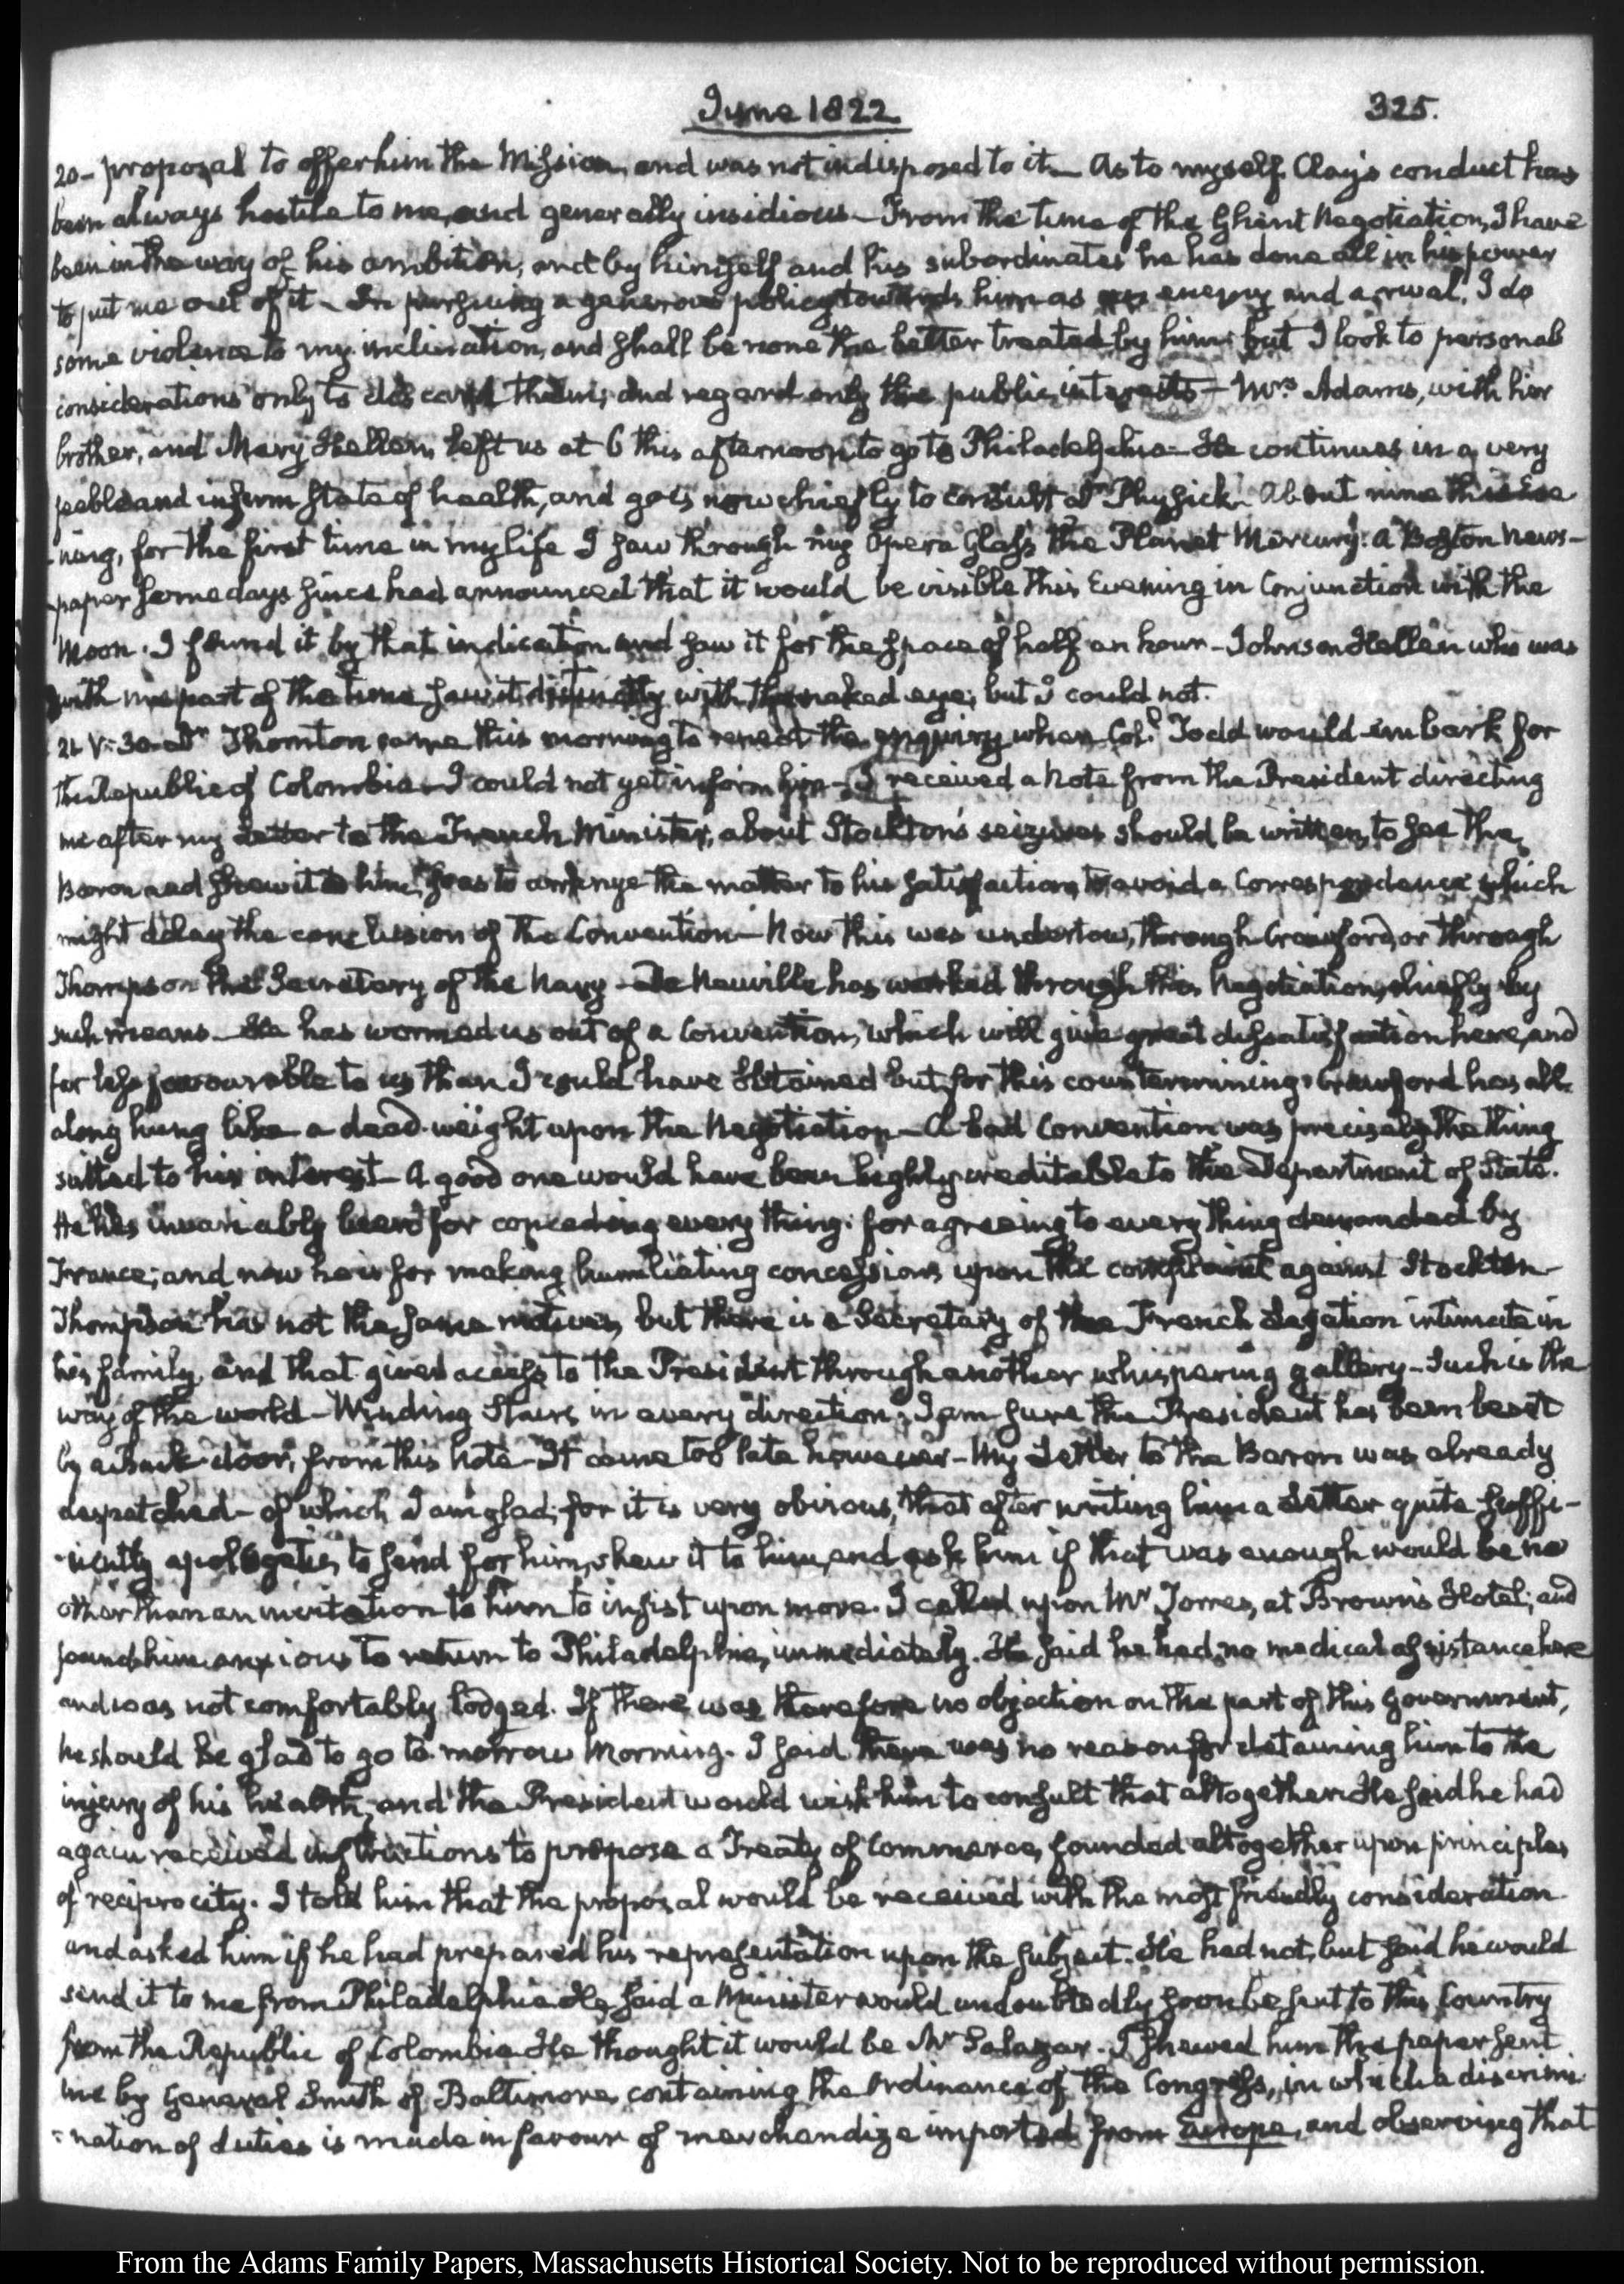 June 1822.
325.
20- proposal to offer him the Mission, and was not indisposed to it. As to myself Clay's conduct has
been always hostile to me, and generally insidious. From the time of the Ghent Negotiation, I have
been in the way of his ambition, and by himself and his subordinates he has done all in his power
to put me out of it. In pursuing a generous policy towards him as an enemy and a rival, I do
some violence to my inclination, and shall be none the better treated by him; but I look to personal
considerations only to discard them; and regard only the public interests- Mrs. Adams, with her
brother, and Mary Hellen, left us at 6 this afternoon to go to Philadelphia- He continues in a very
feeble and infirm state of health, and goes now chiefly to consult Dr Physick. About nine this Eve
-ning, for the first time in my life I saw through my Opera Glass the Planet Mercury. A Boston News-
paper some days since had announced that it would be visible this Evening in Conjunction with the
Moon. I found it by that indication and saw it for the space of half an hour- Johnson Hellen who was
with me part of the time saw it distinctly with the naked eye; but I could not.
21. V:30. Dr Thornton came this morning to repeat the enquiry when Col. Todd would embark for
the Republic of Colombia- I could not yet inform him- I received a Note from the President directing
me after my Letter to the French Minister, about Stockton's seizures should be written, to see the
Baron and shew it to him, so as to arrange the matter to his satisfaction, to avoid a Correspondence which
might delay the conclusion of the Convention- Now this was undertow, through Crawford, or through
Thompson the Secretary of the Navy- De Neuville has worked through this Negotiation, chiefly by
such means- He has wormed us out of a Convention, which will give great dissatisfaction here, and
far less favourable to us than I could have obtained but for this countermining. Crawford has all
along hung like a dead-weight upon the Negotiation- A bad Convention was precisely the thing
suited to his interest- A good one would have been highly creditable to the Department of State.
He has invariably been for conceding every thing: for agreeing to every thing demanded by
France; and now he is for making humiliating concessions upon the complaint against Stockton-
Thompson has not the same motives, but there is a Secretary of the French Legation intimate in
his family, and that gives access to the President through another whispering gallery- Such is the
way of the world- Winding Stairs in every direction. I am sure the President has been beset
by a back-door, from this note- It came too late however- My Letter to the Baron was already
despatched- of which I am glad; for it is very obvious, that after writing him a Letter quite suffi-
-ciently apologetic, to send for him, shew it to him, and ask him if that was enough would be no
other than an invitation to him to insist upon more. I called upon Mr Torres, at Brown's Hotel; and
found him anxious to return to Philadelphia, immediately. He said he had no medical assistance here
and was not comfortably lodged. If there was therefore no objection on the part of this Government,
he should be glad to go to-morrow Morning. I said there was no reason for detaining him to the
injury of his health, and the President would wish him to consult that altogether. He said he had
again received instructions to propose a Treaty of Commerce, founded altogether upon principles
of reciprocity. I told him that the proposal would be received with the most friendly consideration
and asked him if he had prepared his representation upon the subject. He had not, but said he would
send it to me from Philadelphia. He said a Minister would undoubtedly soon be sent to this Country
from the Republic of Colombia. He thought it would be Mr Salazar. I shewed him the paper sent
me by General Smith of Baltimore, containing the Ordinance of the Congress, in which a discrimi
-nation of duties is made in favour of merchandize imported from Europe, and observing that
From the Adams Family Papers, Massachusetts Historical Society. Not to be reproduced without permission.